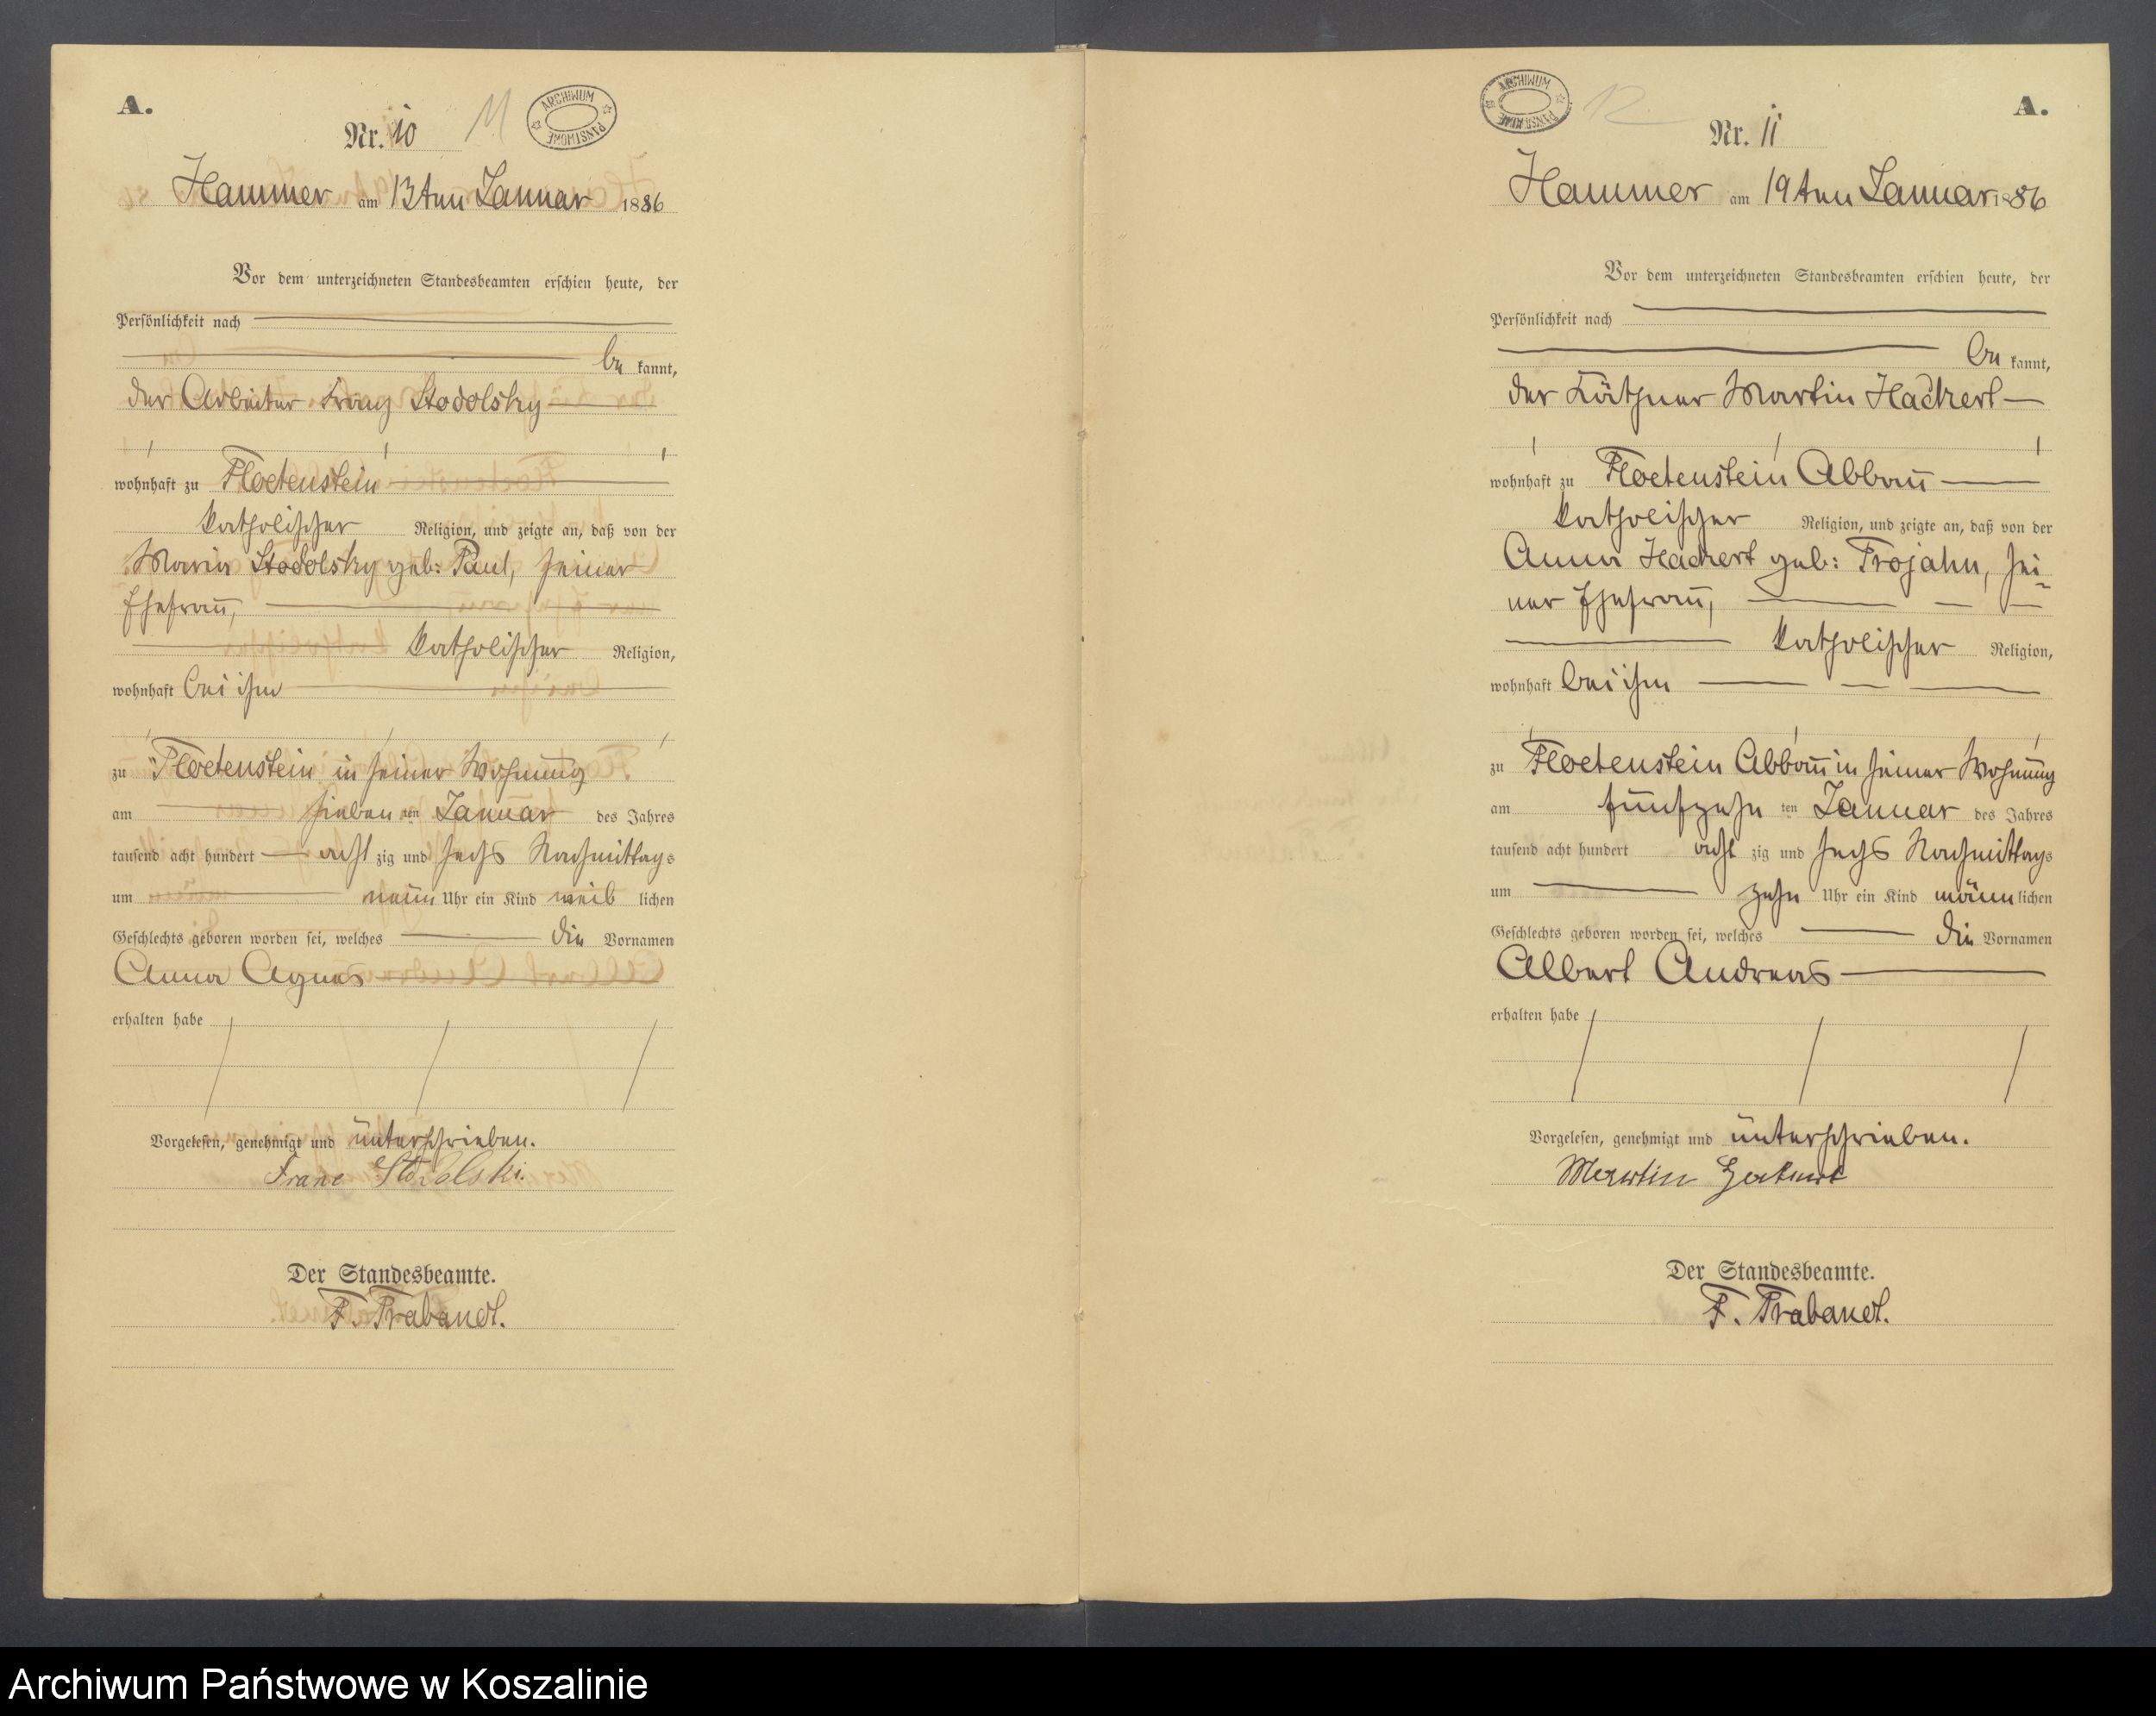 A.
Nr. 10
11
ARCHIWUM PAŃSTWOWE
Hammer am 13ten Januar 1886
Vor dem unterzeichneten Standesbeamten erschien heute, der
Persönlichkeit nach
be kannt,
der Arbeiter Franz Stodolsky
wohnhaft zu Floetenstein
katholischer Religion, und zeigte an, daß von der
Maria Stodolsky geb: Paul, seiner
Ehefrau,
katholischer Religion,
wohnhaft bei ihm
zu Floetenstein in seiner Wohnung
am sieben ten Januar des Jahres
tausend acht hundert acht zig und sechs Nachmittags
um neun Uhr ein Kind weib lichen
Geschlechts geboren worden sei, welches die Vornamen
Anna Agnes
erhalten habe
Vorgelesen, genehmigt und unterschrieben.
Franc Stodolski.
Der Standesbeamte.
F. Trabandt.
ARCHIWUM PAŃSTWOWE
12
A.
Nr. 11
Hammer am 19ten Januar 1886
Vor dem unterzeichneten Standesbeamten erschien heute, der
Persönlichkeit nach
be kannt,
der Käthner Martin Hackert
wohnhaft zu Floetenstein Abbau
katholischer Religion, und zeigte an, daß von der
Anna Hackert geb: Trojahn, sei-
ner Ehefrau,
katholischer Religion,
wohnhaft bei ihm
zu Floetenstein Abbau in seiner Wohnung
am fünfzehn ten Januar des Jahres
tausend acht hundert acht zig und sechs Nachmittags
um zehn Uhr ein Kind männ lichen
Geschlechts geboren worden sei, welches die Vornamen
Albert Andreas
erhalten habe
Vorgelesen, genehmigt und unterschrieben.
Martin
Der Standesbeamte.
F. Trabandt.
Archiwum Państwowe w Koszalinie